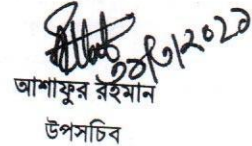 আশাফুর রহমান
উপসচিব